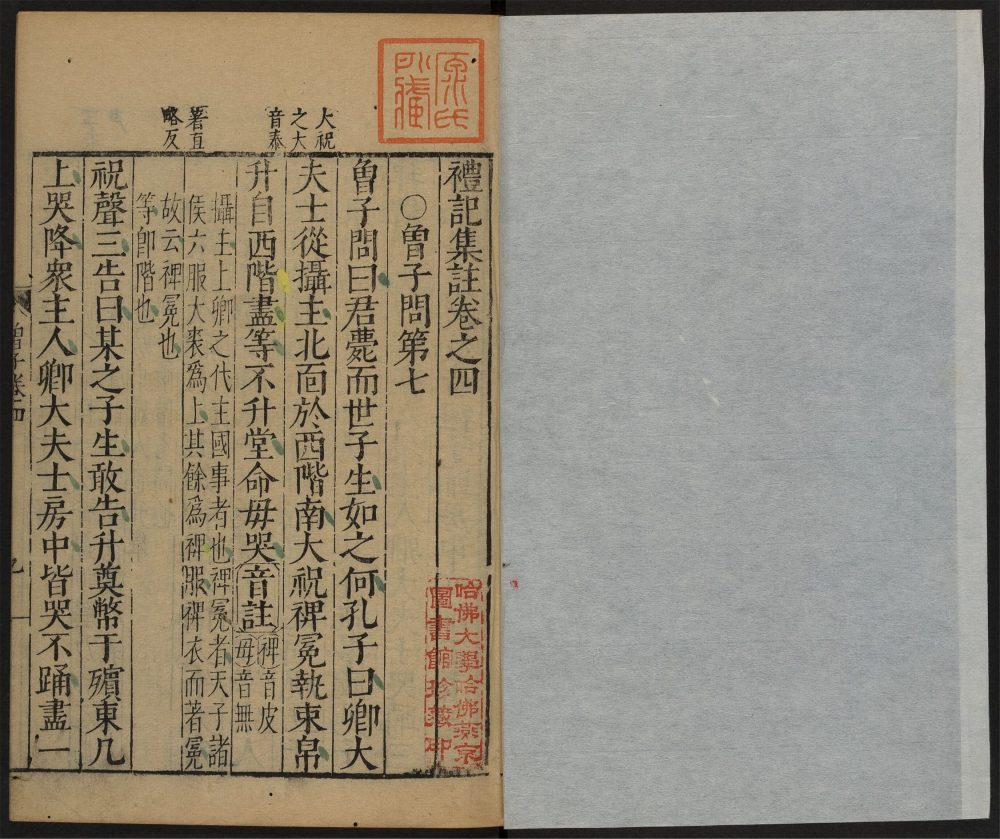 禮記集註卷之四
○曾子問第七
曾子問曰君薨而世子生如之何孔子曰卿大
夫士從攝主北面於西階南大祝裨冕執束帛
升自西階盡等不升堂命毋哭音註裨音皮毋音無
攝主上卿之代主國事者也裨冕者天子諸
侯六服大裘爲上其餘爲裨服裨衣而著冕
故云裨冕也
等卽階也
祝聲三告曰某之子生敢告升奠幣于殯東几
上哭降衆主人卿大夫士房中皆哭不踊盡一
大祝
之大
音泰
著直
略反
曾子卷四
哈佛大學哈佛燕京
圖書館珍藏印